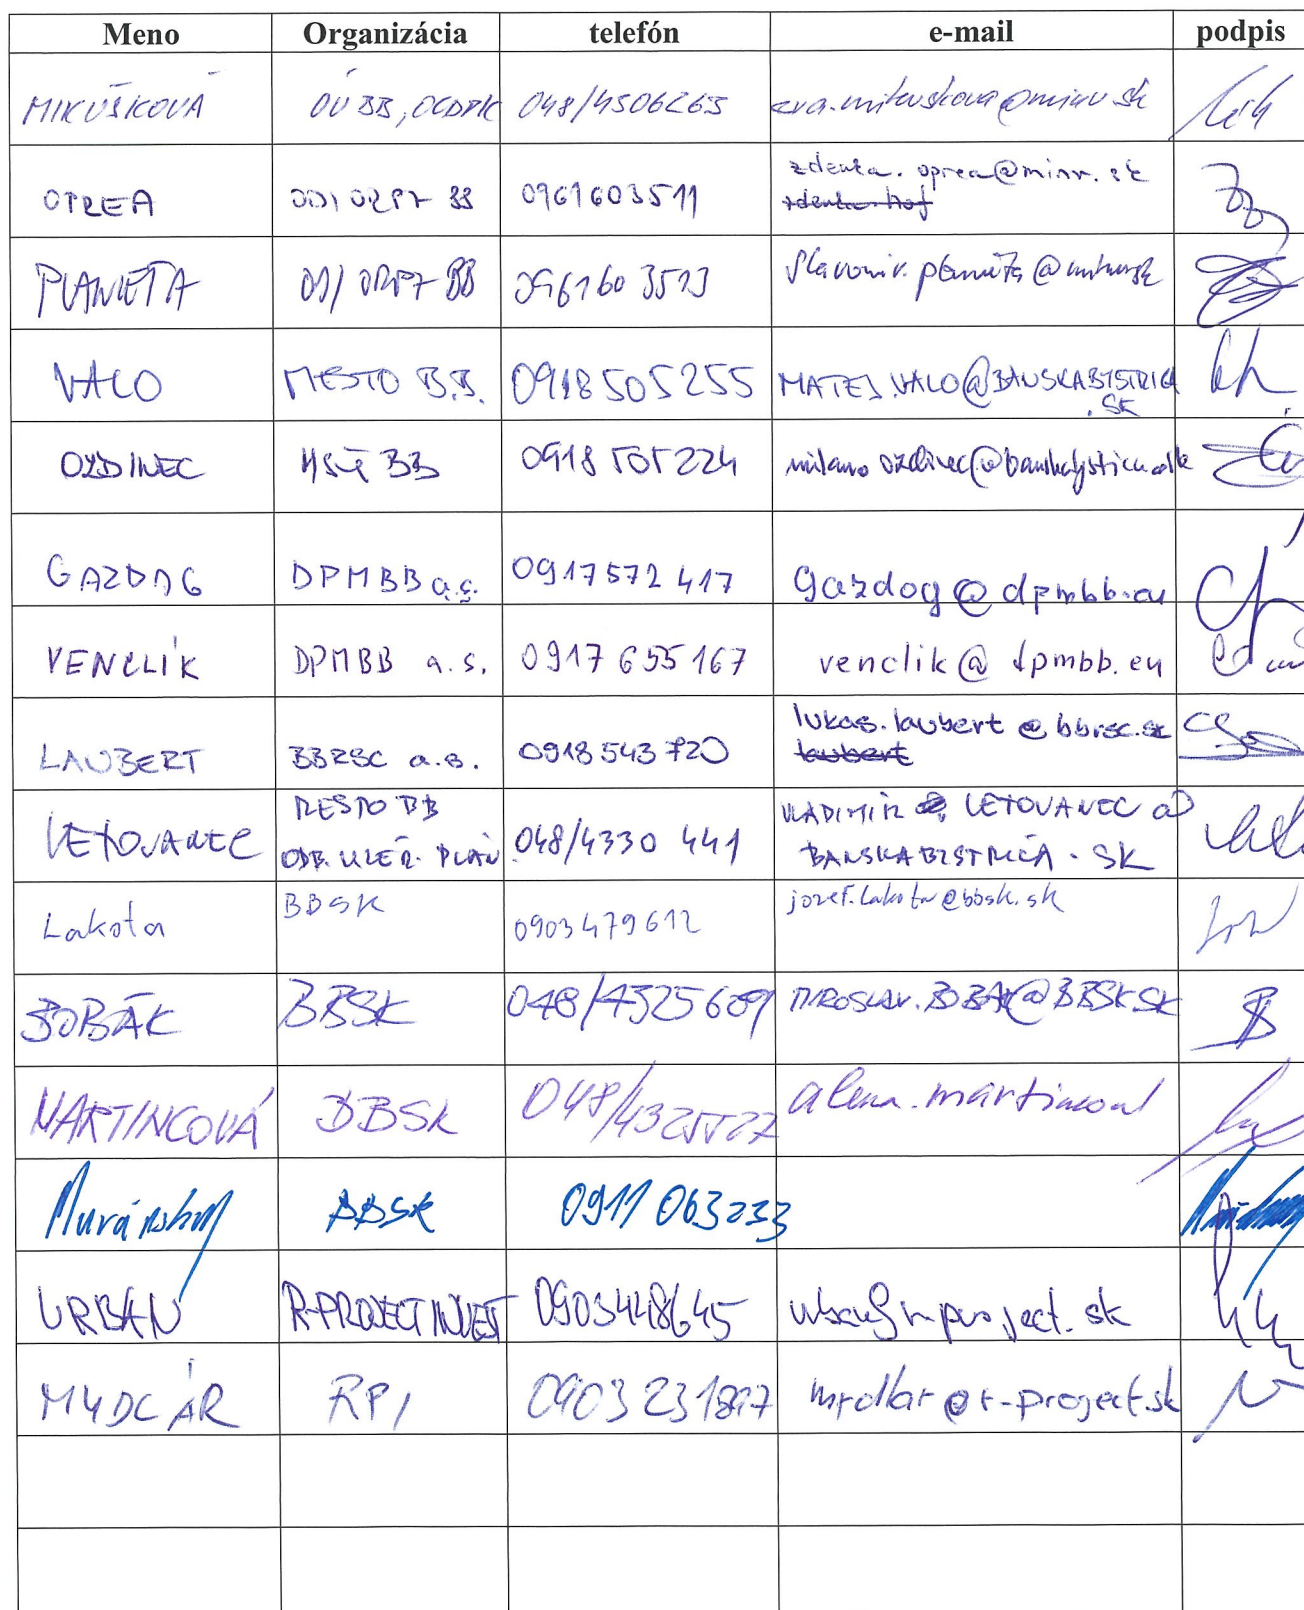 Meno Organizácia telefón e-mail podpis
MIKUŠKOVÁ OÚ BB, OCDPK 048/4306263 eva.mikuskova@minv.sk
OPREA ODI ORPZ BB 0961603511 zdenka.oprea@minv.sk
zdenka.hof
PLANIETA ODI ORPZ BB 0961603513
VALO MESTO B.B. 0918505255 MATEJ.VALO@BANSKABYSTRICA
.SK
OZDINEC MsÚ BB 0918 505 224
GAZDAG DPMBB a.s. 0917572 417 gazdag@dpmbb.eu
VENCLÍK DPMBB a.s. 0917 655 167 venclik@dpmbb.eu
LAUBERT BBRSC a.s. 0918 543 720 lukas.laubert@bbrsc.sk
laubert
LETOVANEC MESTO BB
ODB. ÚZER. PLÁN 048/4330 441 VLADIMÍR LETOVANEC @
BANSKABYSTRICA.SK
Lakota BBSK 0903479612 jozef.lakota@bbsk.sk
BOBÁK BBSK 048/4325609 MIROSLAV.BOBAK@BBSK.SK
MARTINCOVÁ BBSK 048/4325527 alena.martincova
BBSK 0911 063233
URBAN R-PROJECT INVEST 0903448645
MLYDCÁR RPI 0903 231897 @r-project.sk